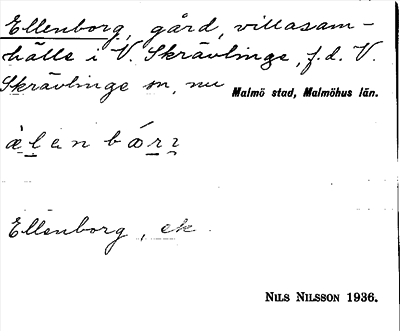 Ellenborg, gård, villasam-
hälle i V. Skrävlinge, f.d. V.
Skrävlinge sn, nu Malmö stad, Malmöhus län.
Ellenborg, ek.
NILS NILSSON 1936.